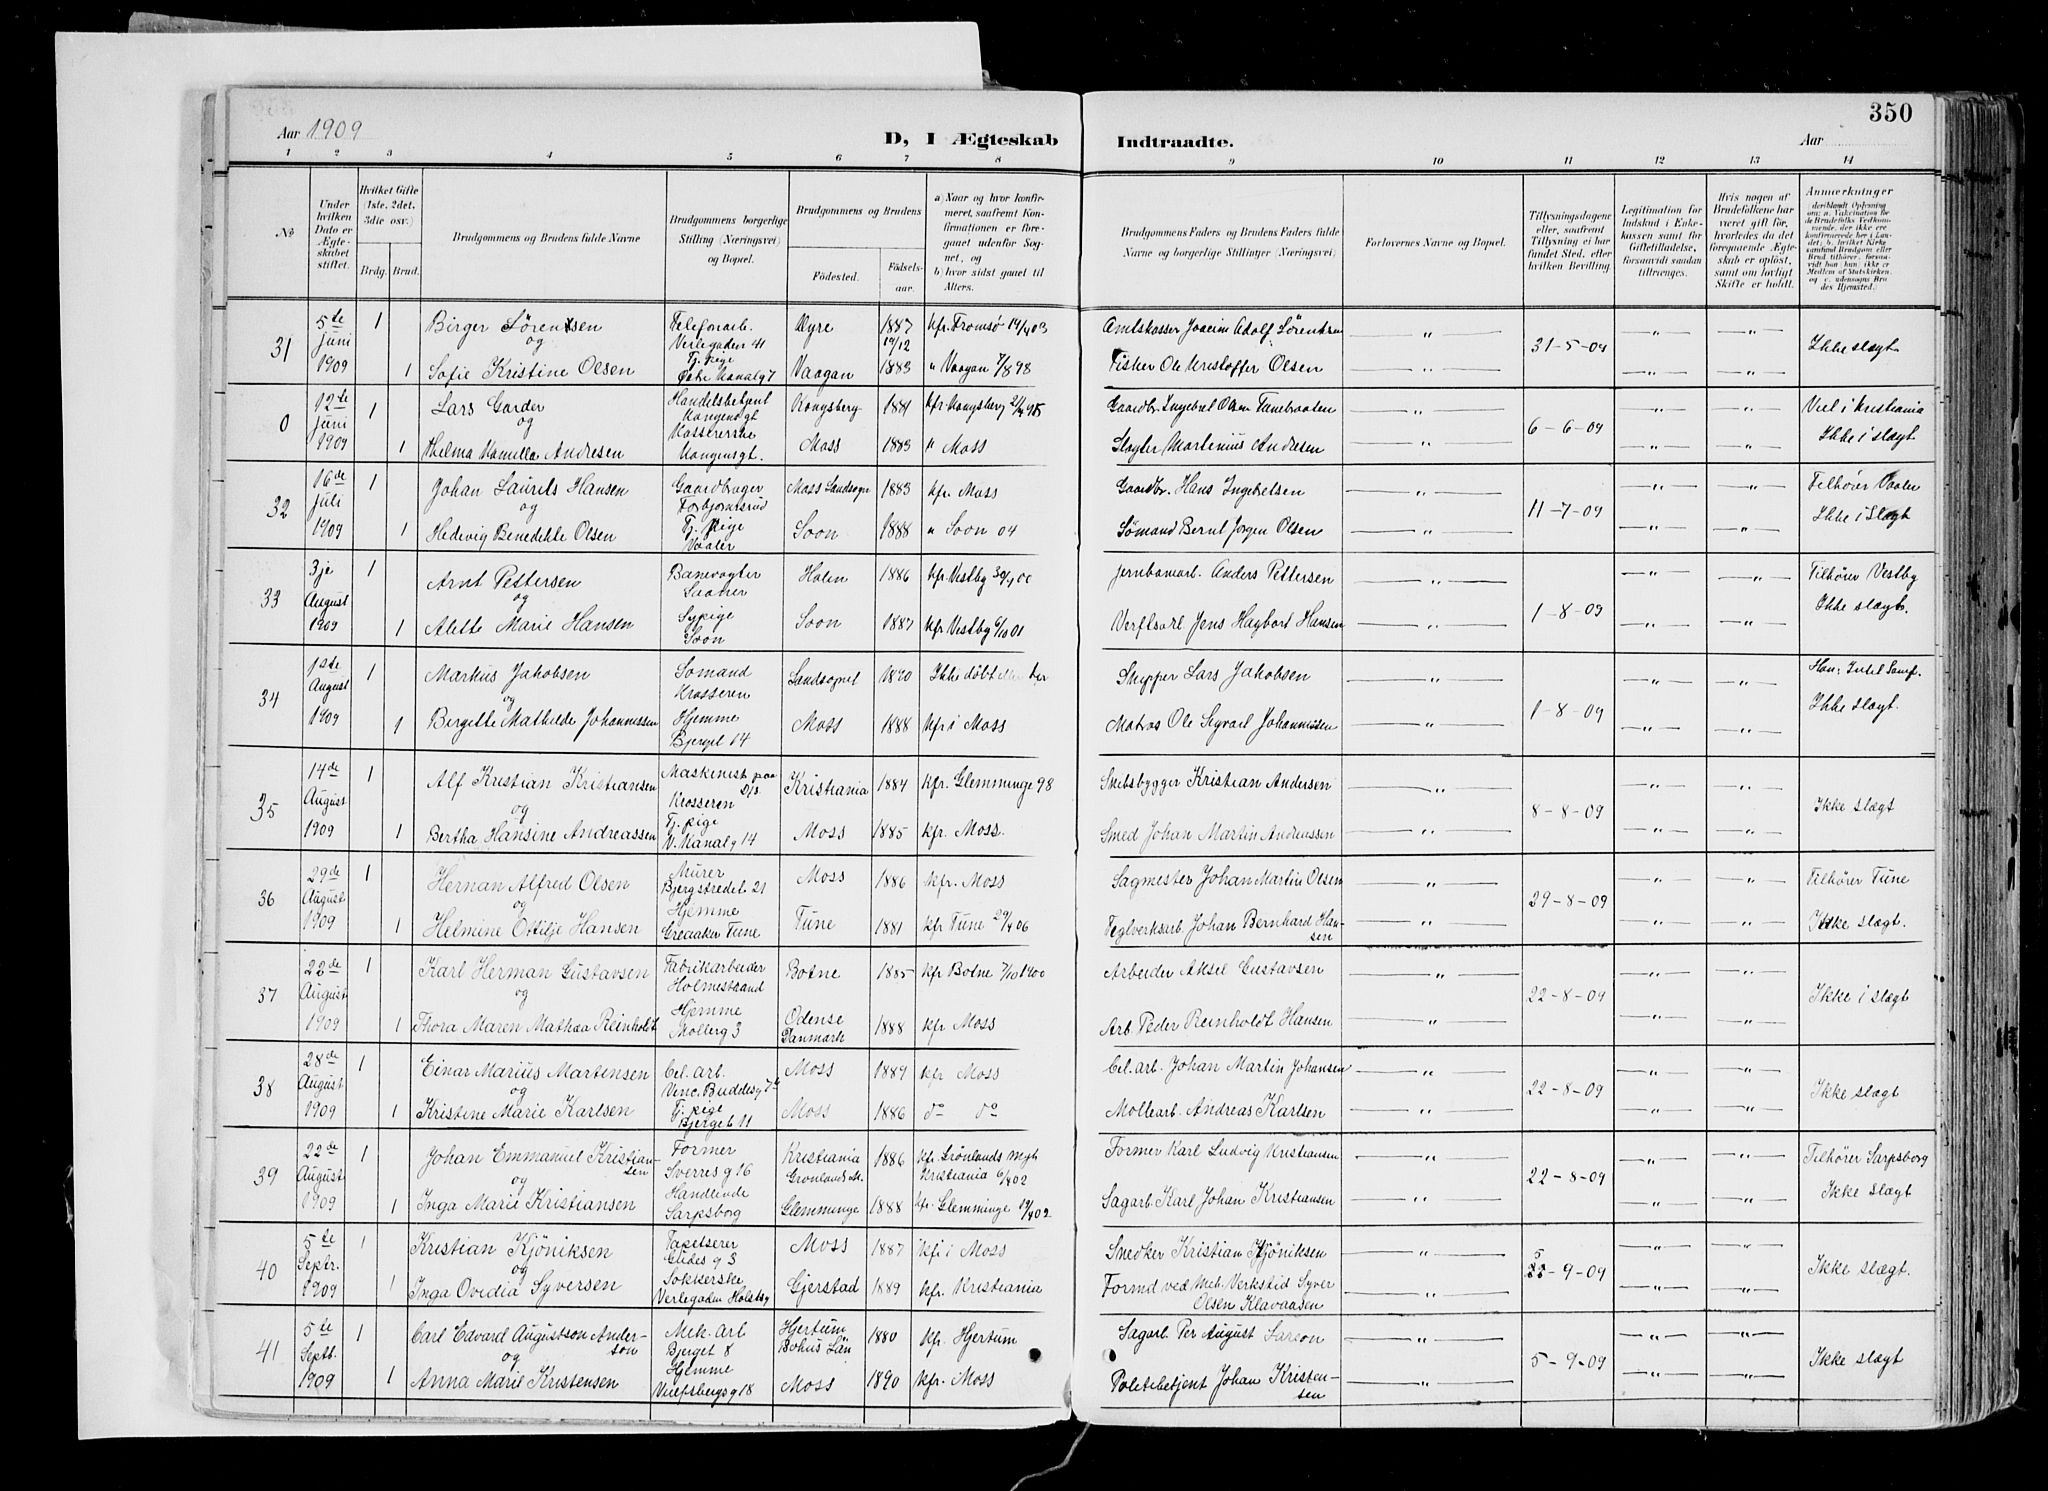 350
Aar 1909
D, I Ægteskab Indtraadte.
Aar
1 2 3 4 5 6 7 8 9 10 11 12 13 14
№
Under hvilken Dato er Ægteskabet stiftet.
Hvilket Gifte (1ste, 2det, 3die osv.)
Brdg. Brud.
Brudgommens og Brudens fulde Navne
Brudgommens borgerlige Stilling (Næringsvei) og Bopæl.
Brudgommens og Brudens
Fødested. Fødselsaar.
a) Naar og hvor konfirmeret, saafremt Konfirmationen er foregaaet udenfor Sognet, og
b) hvor sidst gaaet til Alters.
Brudgommens Faders og Brudens Faders fulde Navne og borgerlige Stillinger (Næringsvei)
Forlovernes Navne og Bopæl.
Tillysningsdagene eller, saafremt Tillysning ei har fundet Sted, efter hvilken Bevilling.
Legitimation for Indskud i Enkekassen samt for Giftetilladelse, forsaavidt saadan tiltrænges.
Hvis nogen af Brudefolkene har været gift før, hvorledes da det foregaaende Ægteskab er opløst, samt om lovligt Skifte er holdt.
Anmærkninger
31 5te Juni 1909 1 Birger Sörentsen Telefonarb. Øyre 1887 19/12 kfr. Tromsø 19/4 03 Amtskasser Joacim Adolf Sörentsen 31-5-09 Ikke slægt
og Verlegaden 41
1 Sofie Kristine Olsen Tj. pige Østre Kanalg 7 Vaagan 1883 " Vaagan 7/8 98 Fisker Ole Kristoffer Olsen
0 12te Juni 1909 1 Lars Garder Handelsbetjent Kongensgt Kongsberg 1881 kfr. Kongsberg Gaardbr. Ingebret Olsen 6-6-09 Viel i Kristiania
og
1 Thelma Kamilla Andresen Kassererske Kongensgt. Moss 1883 " Moss Slagter Martinius Andresen Ikke i slægt
32 16de Juli 1909 1 Johan Laurits Hansen Gaardbruger Moss Landsogn 1883 kfr. Moss Gaardbr. Hans Ingebretsen 11-7-09 Tilhører Vaaler
og
1 Hedevig Benedikte Olsen Tj. pige Vaaler Soon 1888 " Soon 04 Sömand Bernt Jørgen Olsen Ikke i Slægt
33 3je August 1909 1 Arnt Pettersen Banevogter Saaner Holen 1886 kfr. Vestby Jernbanearb. Anders Pettersen 1-8-09 Tilhører Vestby
og
1 Alette Marie Hansen Sypige Soon Soon 1887 kfr Vestby 6/10 01 Verftsarb. Jens Hagbart Hansen Ikke slægt.
34 1ste August 1909 1 Markus Jakobsen Sömand Krosseren Landsognet 1890 Ikke döbt eller Skipper Lars Jakobsen 1-8-09 Han: Intet Samf.
og
1 Bergitte Mathilde Johannessen Hjemme Bjerget 14 Moss 1888 kfr i Moss Matros Ole Johannessen Ikke slægt.
35 14de August 1909 1 Alf Kristian Kristiansen Maskinist paa D/s Krosseren Kristiania 1884 kfr. Glemminge 98 Skibsbygger Kristian Andersen 8-8-09 Ikke slægt
og
1 Bertha Hansine Andreassen Tj. pige V. Kanalg 14 Moss 1885 kfr. Moss. Smed Johan Martin Andreassen
36 29de August 1909 1 Herman Alfred Olsen Murer Bjergstredet 21 Moss 1886 kfr. Moss Sagmester Johan Martin Olsen 29-8-09 Tilhører Tune
og
1 Helmine Ottilje Hansen Hjemme Greaaker Tune Tune 1881 kfr Tune 29/4 06 Teglverksarb. Johan Bernhard Hansen Ikke slægt.
37 22de August 1909 1 Karl Herman Gustavsen Fabrikarbeider Holmestrand Botne 1885 kfr Botne 7/10 1900 Arbeider Aksel Gustavsen 22-8-09 Ikke i slægt
og
1 Thora Maren Mathea Reinholdt Hjemme Mollerg 3 Odense Danmark 1888 kfr Moss Arb. Peder Reinholdt Hansen
38 28de August 1909 1 Einar Marius Martensen Cel. arb. Venc. Buddesg 7 Moss 1889 kfr Moss Cel. arb. Johan Martin Johansen 22-8-09 Ikke slægt
og
1 Kristine Marie Karlsen Tj. pige Bjerget 11 Moss 1886 do do Mollearb. Andreas Karlsen
39 22de August 1909 1 Johan Emmanuel Kristiansen Former Sverres g 16 Kristiania Grønlands M. 1886 kfr. Grønlands Mgt Kristiania 6/4 02 Former Karl Ludvig Kristiansen 22-8-09 Tilhører Sarpsborg
og
1 Inga Marie Kristiansen Handlende Sarpsborg Glemminge 1888 kfr. Glemminge Sagarb. Karl Johan Kristiansen Ikke slægt
40 5te Septr. 1909 1 Kristian Kjöniksen Tapetserer Gudes g 3 Moss 1887 kfr i Moss Snedker Kristian Kjöniksen 5-9-09 Ikke slægt.
og
1 Inga Ovidia Syversen Sokkerske Verlegaden Gjerstad 1889 kfr. Kristiania Formd ved Mek. Verksted Syver Olsen Klavaasen
41 5te Septb. 1909 1 Carl Edvard Augustson Anderson Mek. Arb Bjerget 8 Hjertum Bohus Län 1880 kfr. Hjertum Sagarb. Per August Larson 5-9-09 Ikke slægt
og
1 Anna Marie Kristensen Hjemme g 18 Moss 1890 kfr. Moss Politibetjent Johan Kristensen